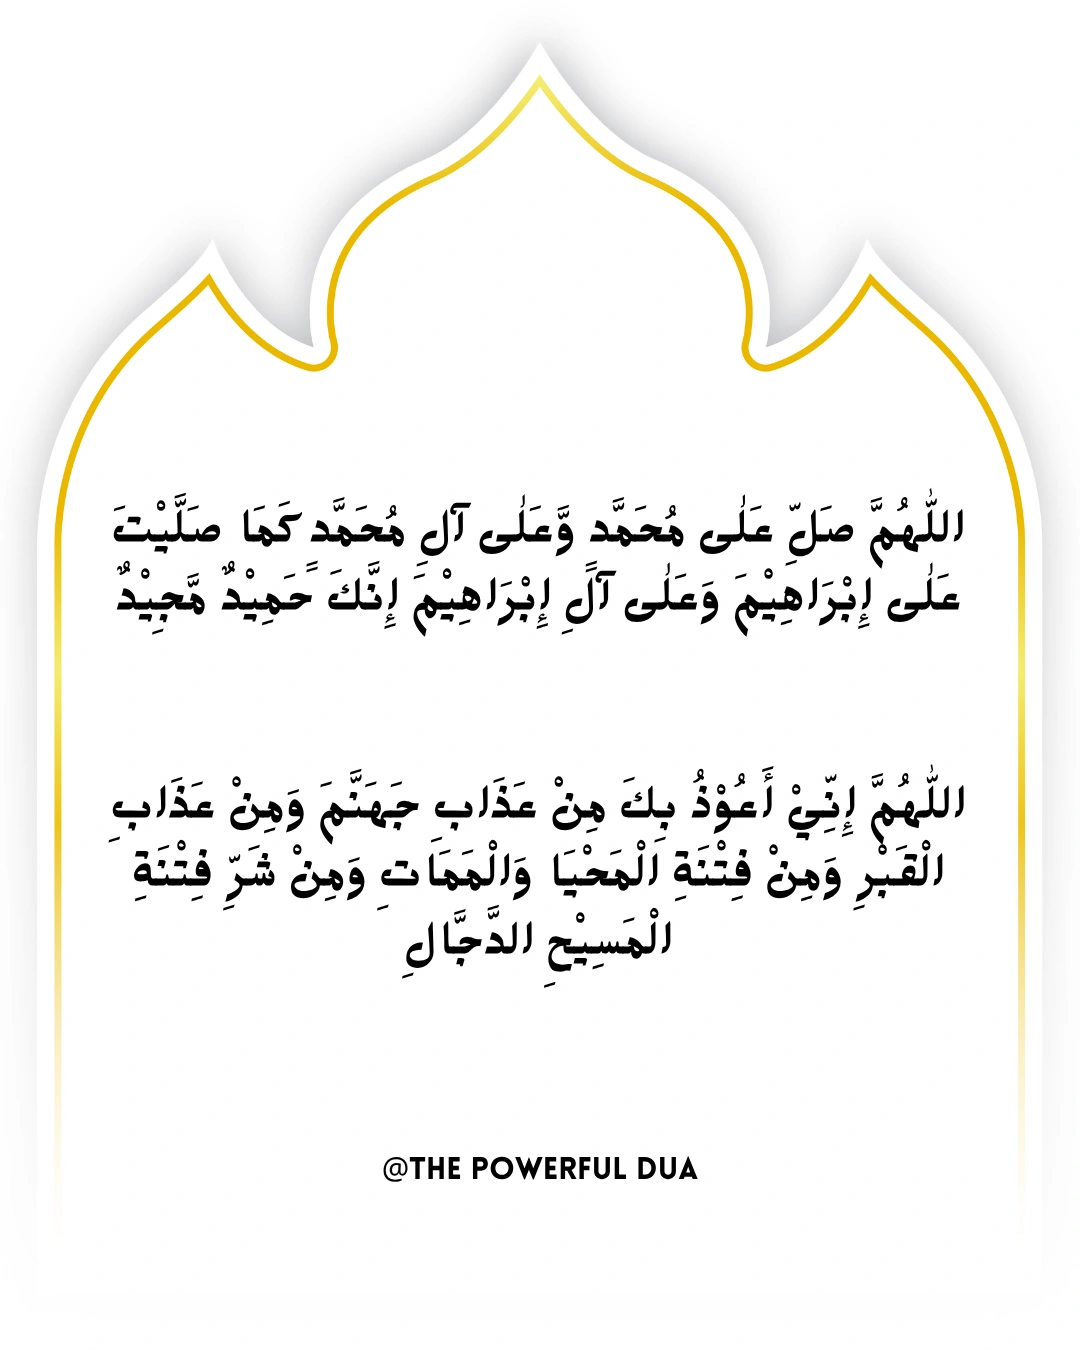 اللّٰهُمَّ صَلِّ عَلٰى مُحَمَّدٍ وَّعَلٰى آلِ مُحَمَّدٍ كَمَا صَلَّيْتَ
عَلٰى إِبْرَاهِيْمَ وَعَلٰى آلِ إِبْرَاهِيْمَ إِنَّكَ حَمِيْدٌ مَّجِيْدٌ
اللّٰهُمَّ إِنِّيْ أَعُوْذُ بِكَ مِنْ عَذَابِ جَهَنَّمَ وَمِنْ عَذَابِ
الْقَبْرِ وَمِنْ فِتْنَةِ الْمَحْيَا وَالْمَمَاتِ وَمِنْ شَرِّ فِتْنَةِ
الْمَسِيْحِ الدَّجَّالِ
@THE POWERFUL DUA